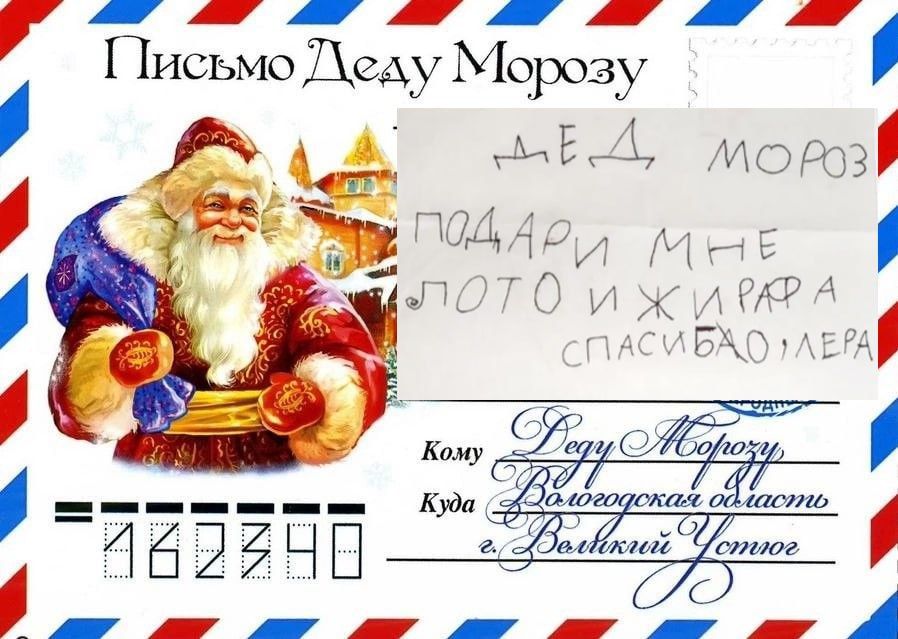 Письмо Деду Морозу
ДЕД МОРОЗ
ПОДАРИ МНЕ
ЛОТО И ЖИРАФА
СПАСИБАО, ЛЕРА
Кому Деду Морозу,
Куда Вологодская область
г. Великий Устюг
162340